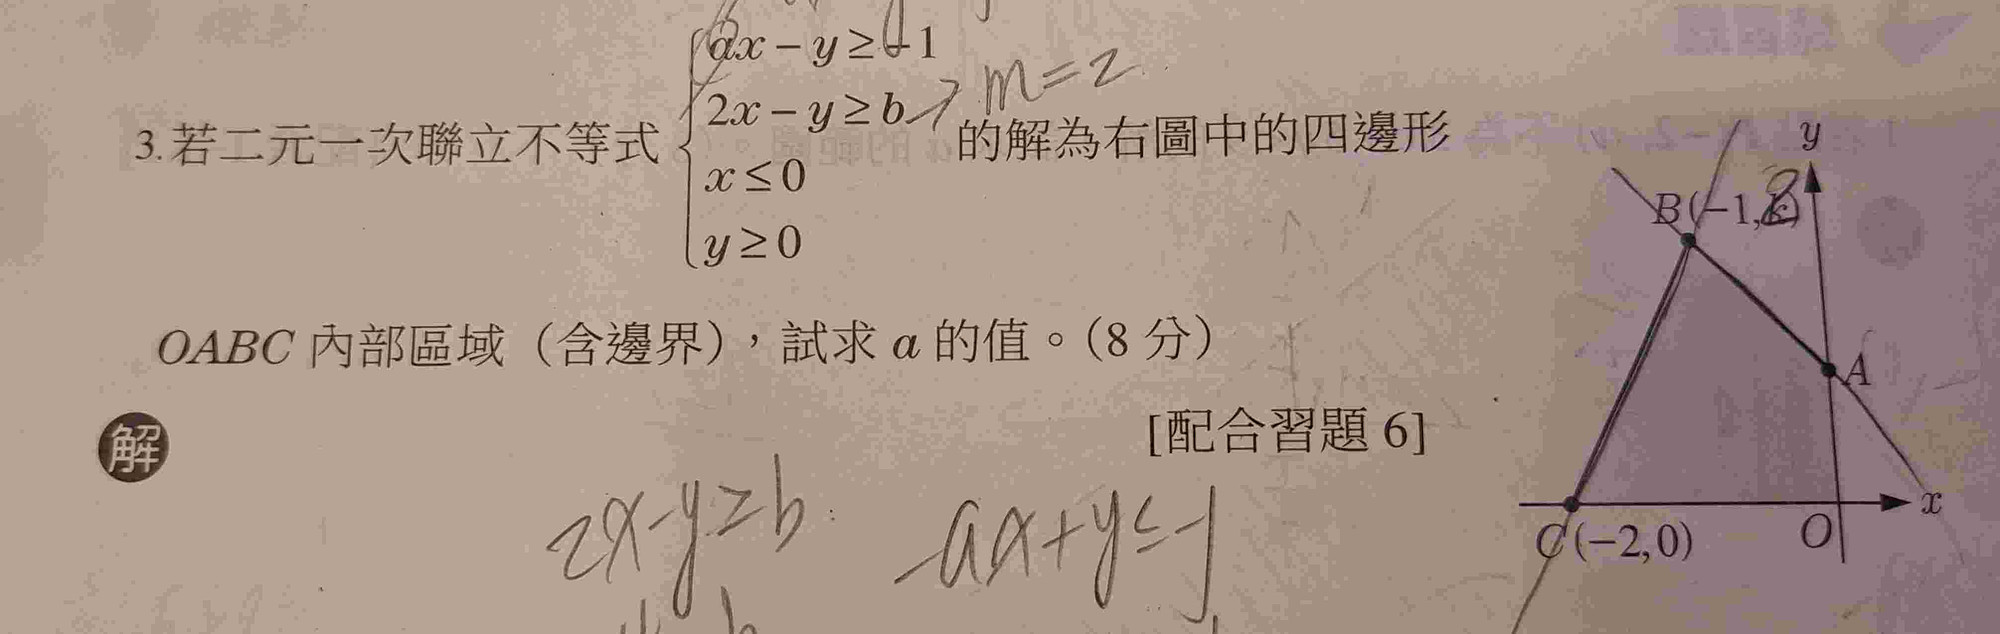 ax－y≥－1
2x－y≥b → m=2
3.若二元一次聯立不等式 的解為右圖中的四邊形
x≤0
y≥0
OABC 內部區域（含邊界），試求 a 的值。（8 分）
[配合習題 6]
解
2x-y≥b
-ax+y≤-1
y
B(－1,k)
A
C(－2,0)
O
x